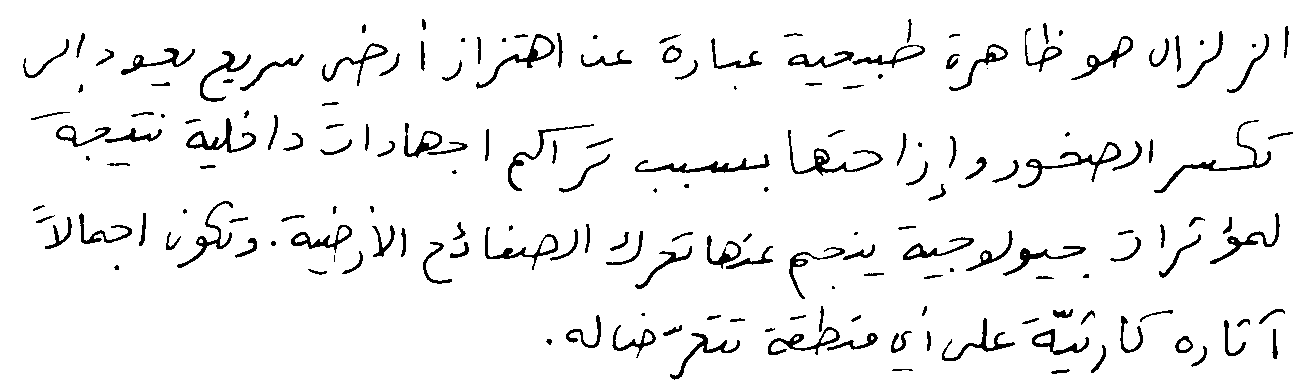 الزلزال هو ظاهرة طبيعية عبارة عن اهتزاز أرضي سريع يعود إلى
تكسر الصخور وإزاحتها بسبب تراكم اجهادات داخلية نتيجة
لمؤثرات جيولوجية ينجم عنها تحرك الصفائح الأرضية. وتكون اجمالاً
آثاره كارثيّة على أي منطقة تتعرّض له.